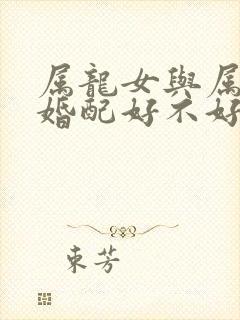 属龍女與属
婚配好不好
東芳